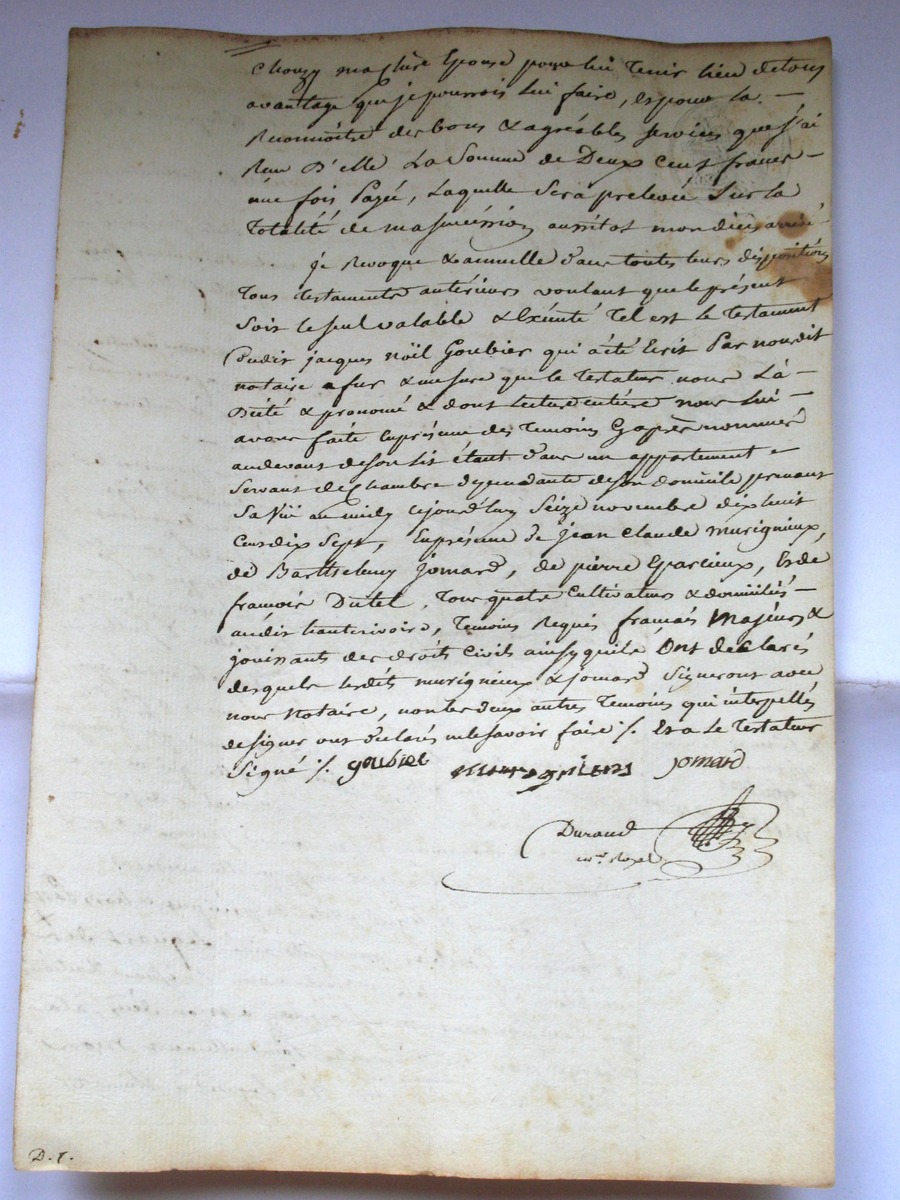 Chouzy ma chère Epouse pour lui tenir lieu de tous
avantage que je pourrois lui faire, et pour la —
Reconnoître des bons & agréables services que j'ai
Reçu D'elle La Somme de Deux cent francs —
une fois Payée, Laquelle Sera prelevée Sur la
Totalité de ma succéssion aussitot mon décès arrivé
je Revoque & annulle dans toutes leurs dispositions
Tous testaments antérieurs voulant que le présent
Soit le seul valable & Exécuté Tel est le Testament
Dudit jacques Noël Goubier qui a été Ecrit Par nousdit
notaire a fur & mesure que le testateur nous L'a —
Dicté & prononcé & dont Lecture entière nous lui —
avons faite en présence des Temoins cy après nommés
au devant de son lit étant dans un appartement —
Servant de Chambre dependante de son domicile prenant
Sa Vüe au midy cejourd'huy Seize novembre dix huit
Cent dix Sept, En présence de Jean Claude Murigneux,
de Barthelemy Jomard, de pierre Eparcieux, Et de
françois Dutel, Tous quatre Cultivateurs & domiciliés —
audit hauterivoire, Temoins Requis français Majeurs &
jouissants des droits Civils ainsy qu'ils Ont déclarés
desquels lesdits murigneux & jomard Signeront avec
nous Notaire, non les deux autres Temoins qui interpellés
de signer ont déclarés ne le savoir faire ./. Et a Le Testateur
Signé ./. goubier murigneux jomard
Durand
not. Royal
D. r.